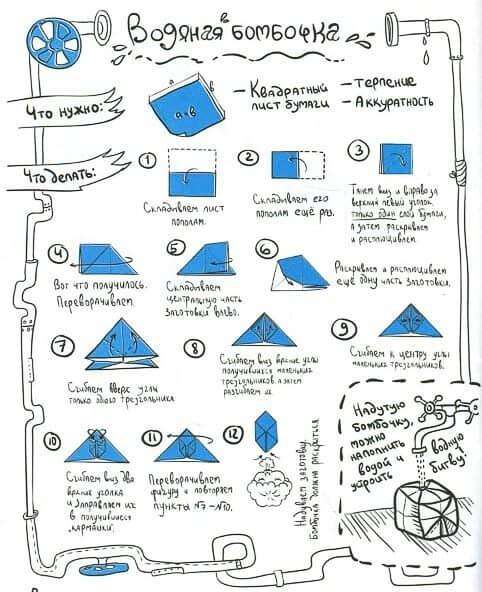 Водяная бомбочка
Что нужно:
a=b
— Квадратный
лист бумаги
— терпение
— Аккуратность
Что делать:
1
Складываем лист
пополам.
2
Складываем его
пополам ещё раз.
3
Тянем вниз и вправо за
верхний левый уголок
только один слой бумаги,
а затем раскрываем
и расплющиваем.
4
Вот что получилось.
Переворачиваем.
5
Складываем
центральную часть
заготовки влево.
6
Раскрываем и расплющиваем
ещё одну часть заготовки.
7
Сгибаем вверх углы
только одного треугольника
8
Сгибаем вниз верхние углы
получившихся маленьких
треугольников, а затем
разгибаем их.
9
Сгибаем к центру углы
маленьких треугольников.
10
Сгибаем вниз два
верхние уголка
и заправляем их
в получившиеся
"кармашки".
11
Переворачиваем
фигуру и повторяем
пункты №7-№10.
12
Надуваем заготовку.
Бомбочка должна раскрыться
Надутую
бомбочку,
можно
наполнить
водой и
устроить
водную
битву!